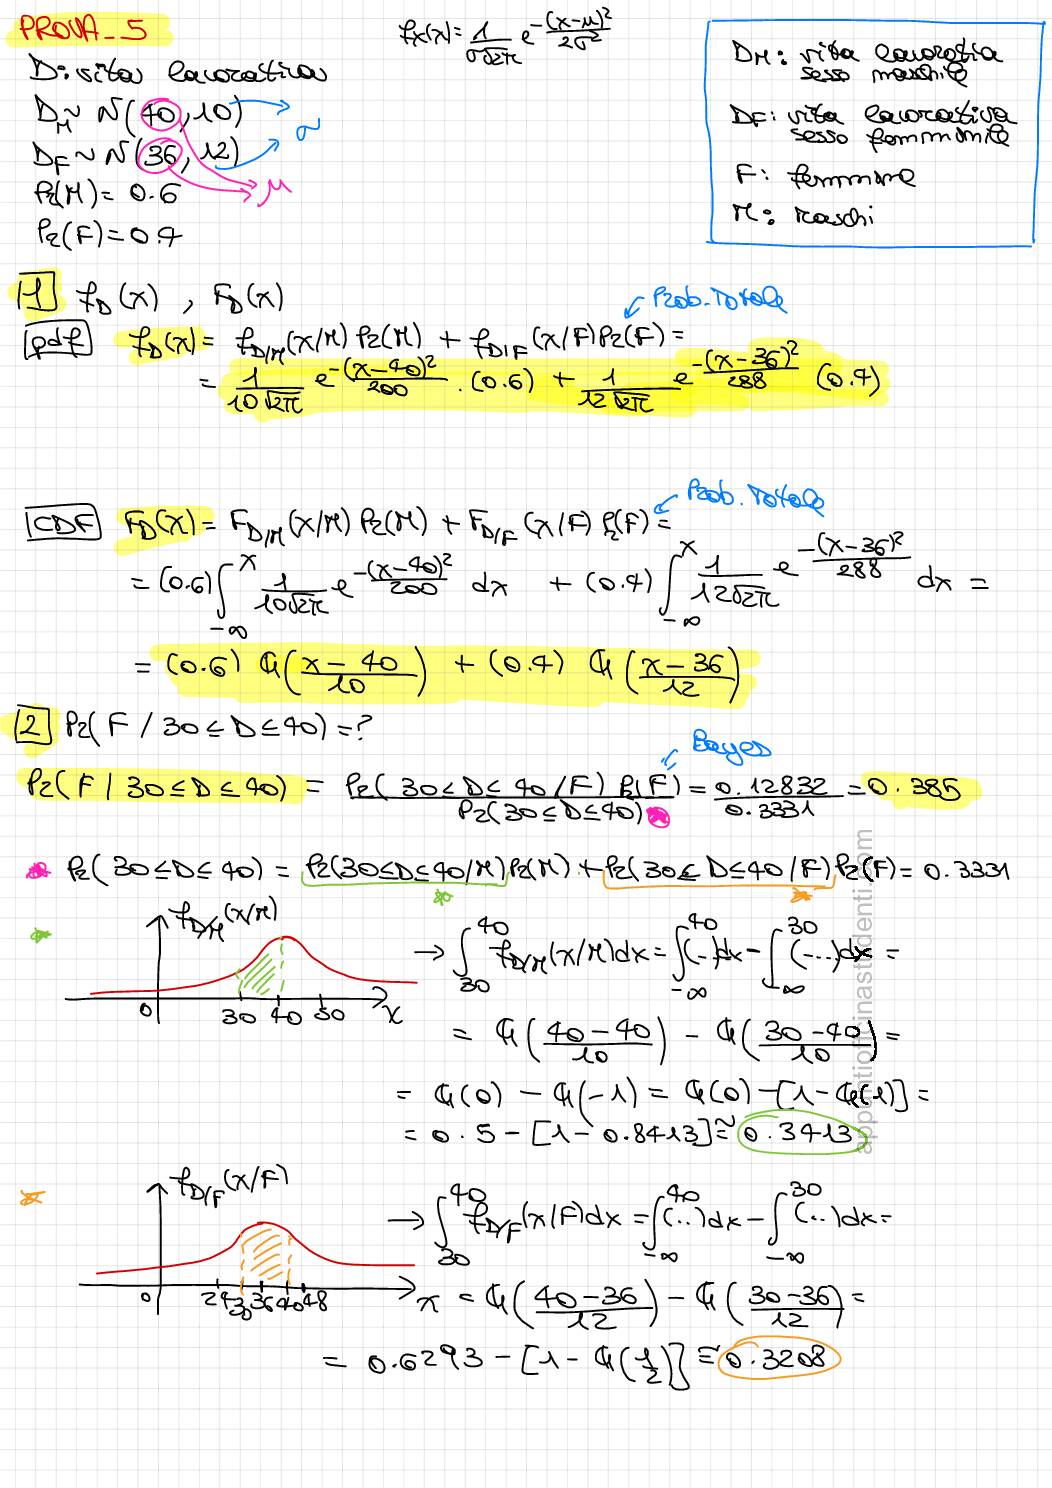 PROVA_5
fx(x) = 1/(σ√2π) e^-(x-μ)²/2σ²
D: vita lavorativa
D_M ~ N(40, 10)
σ
D_F ~ N(36, 12)
μ
Pr(M) = 0.6
Pr(F) = 0.4
D_M: vita lavorativa
sesso maschile
D_F: vita lavorativa
sesso femminile
F: femmine
M: maschi
1 f_D(x), F_D(x)
Prob. Totale
pdf f_D(x) = f_D/M(x/M) Pr(M) + f_D|F(x/F) Pr(F) =
= 1/(10√2π) e^-(x-40)²/200 · (0.6) + 1/(12√2π) e^-(x-36)²/288 (0.4)
Prob. Totale
CDF F_D(x) = F_D/M(x/M) Pr(M) + F_D/F(x/F) Pr(F) =
= (0.6) ∫_-∞^x 1/(10√2π) e^-(x-40)²/200 dx + (0.4) ∫_-∞^x 1/(12√2π) e^-(x-36)²/288 dx =
= (0.6) G((x-40)/10) + (0.4) G((x-36)/12)
2 Pr(F / 30 ≤ D ≤ 40) = ?
Bayes
Pr(F | 30 ≤ D ≤ 40) = Pr(30 ≤ D ≤ 40/F) Pr(F) / Pr(30 ≤ D ≤ 40) = 0.12832/0.3331 = 0.385
Pr(30 ≤ D ≤ 40) = Pr(30 ≤ D ≤ 40/M) Pr(M) + Pr(30 ≤ D ≤ 40/F) Pr(F) = 0.3331
f_D/M(x/M)
0 30 40 50 x
→ ∫_30^40 f_D/M(x/M) dx = ∫_-∞^40 (..) dx - ∫_-∞^30 (...) dx =
= G((40-40)/10) - G((30-40)/10) =
= G(0) - G(-1) = G(0) - [1 - G(1)] =
= 0.5 - [1 - 0.8413] ≅ 0.3413
f_D/F(x/F)
0 24 30 36 40 48 x
→ ∫_30^40 f_D/F(x/F) dx = ∫_-∞^40 (..) dx - ∫_-∞^30 (..) dx =
= G((40-36)/12) - G((30-36)/12) =
= 0.6293 - [1 - G(1/2)] ≅ 0.3208
appuntiofficinastudenti.com